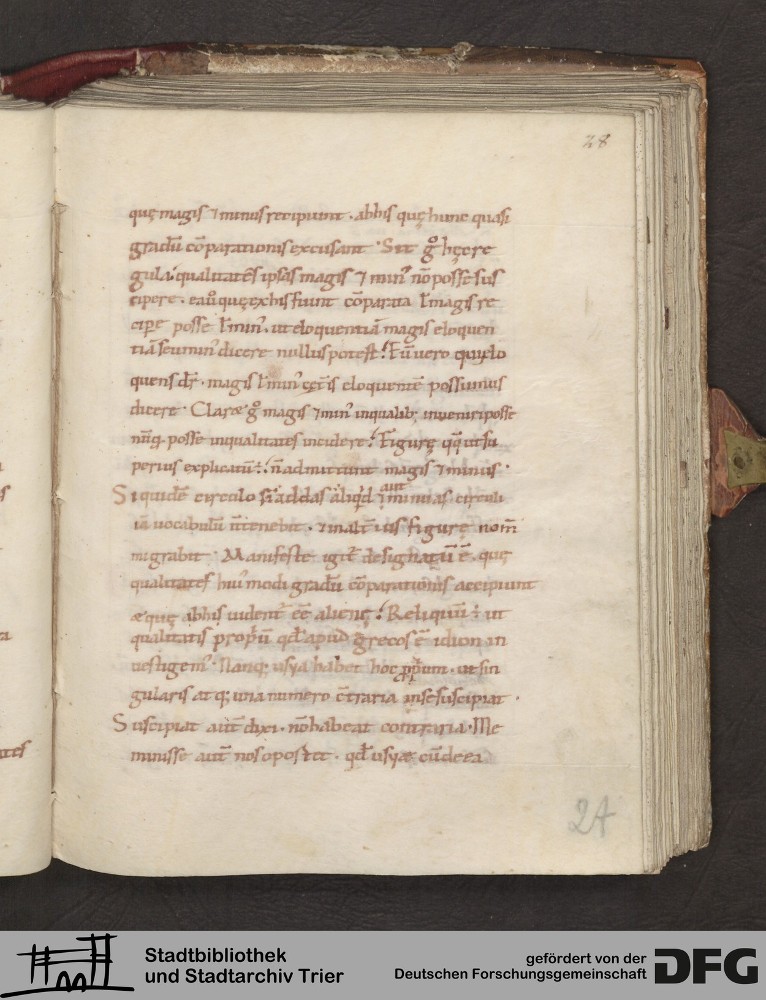 28
quę magis ⁊ minus recipiunt · abhis quę hunc quasi
gradū cōparationis excusant · Sit gͦ hęc re
gula · qualitatēs ipsas magis ⁊ min᾽ nō posse sus
cipere · eaůͦ quę exhis fiunt cōparata ł magis re
cipe posse ł min᾽ · ut eloquentiā magis eloquen
tiā seu min᾽ dicere nullus potest ! Eū uero qui elo
quens dr̄ · magis ł min᾽ cęt̄is eloquentē possumus
dicere · Claræ gͦ magis ⁊ min᾽ inqualib; inueniri posse
nūq posse inqualitates incidere ! Figurę qq̄ ut su
perius explicatū ÷ ! n̄ admittunt magis ⁊ minus ·
Siquidē circulo si addas aliqd aut minuas · circuli
iā uocabulū n̄ tenebit · ⁊ inalt̄ ius figurę nom̄
migrabit · Manifeste igit̄ designatū ē · quę
qualitates hui᾽modi gradū cōparationis accipiunt
æquę abhis uident᾽ eē alienę ! Reliquū ÷ ut
qualitatis propriū qđ apud grecos ē idion in
uestigem᾽ · Nanq; usya habet hoc ppum · ut sin
gularis atq; una numero c̄traria inse suscipiat ·
Suscipiat aut̄ dixi · nō habeat contraria · Me
minisse aut̄ nos oportet · qđ usyæ cū de ea
24
Stadtbibliothek
und Stadtarchiv Trier
gefördert von der
Deutschen Forschungsgemeinschaft
DFG